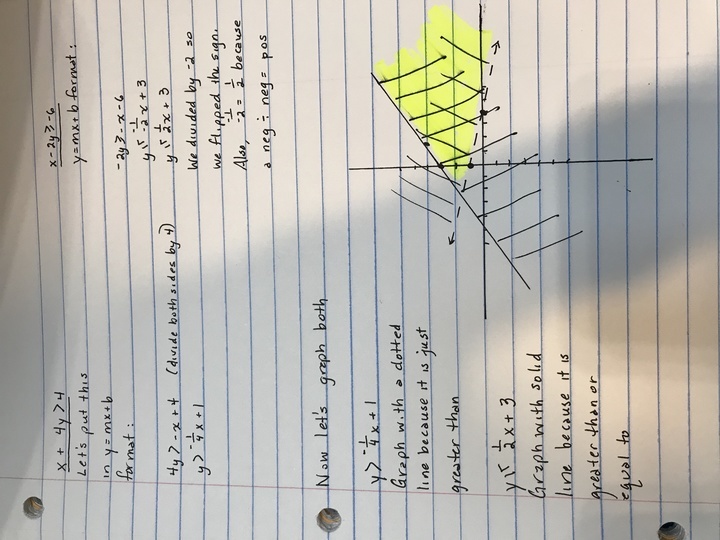 x + 4y > 4
Let's put this
in y = mx+b
format:
4y > -x + 4 (divide both sides by 4)
y > -1/4 x + 1
x - 2y ≥ -6
y = mx + b format:
-2y ≥ -x - 6
y ≤ -1/-2 x + 3
y ≤ 1/2 x + 3
We divided by -2 so
we flipped the sign.
Also, -1/-2 = 1/2 because
a neg ÷ neg = pos
Now let's graph both
y > -1/4 x + 1
Graph with a dotted
line because it is just
greater than
y ≤ 1/2 x + 3
Graph with solid
line because it is
greater than or
equal to